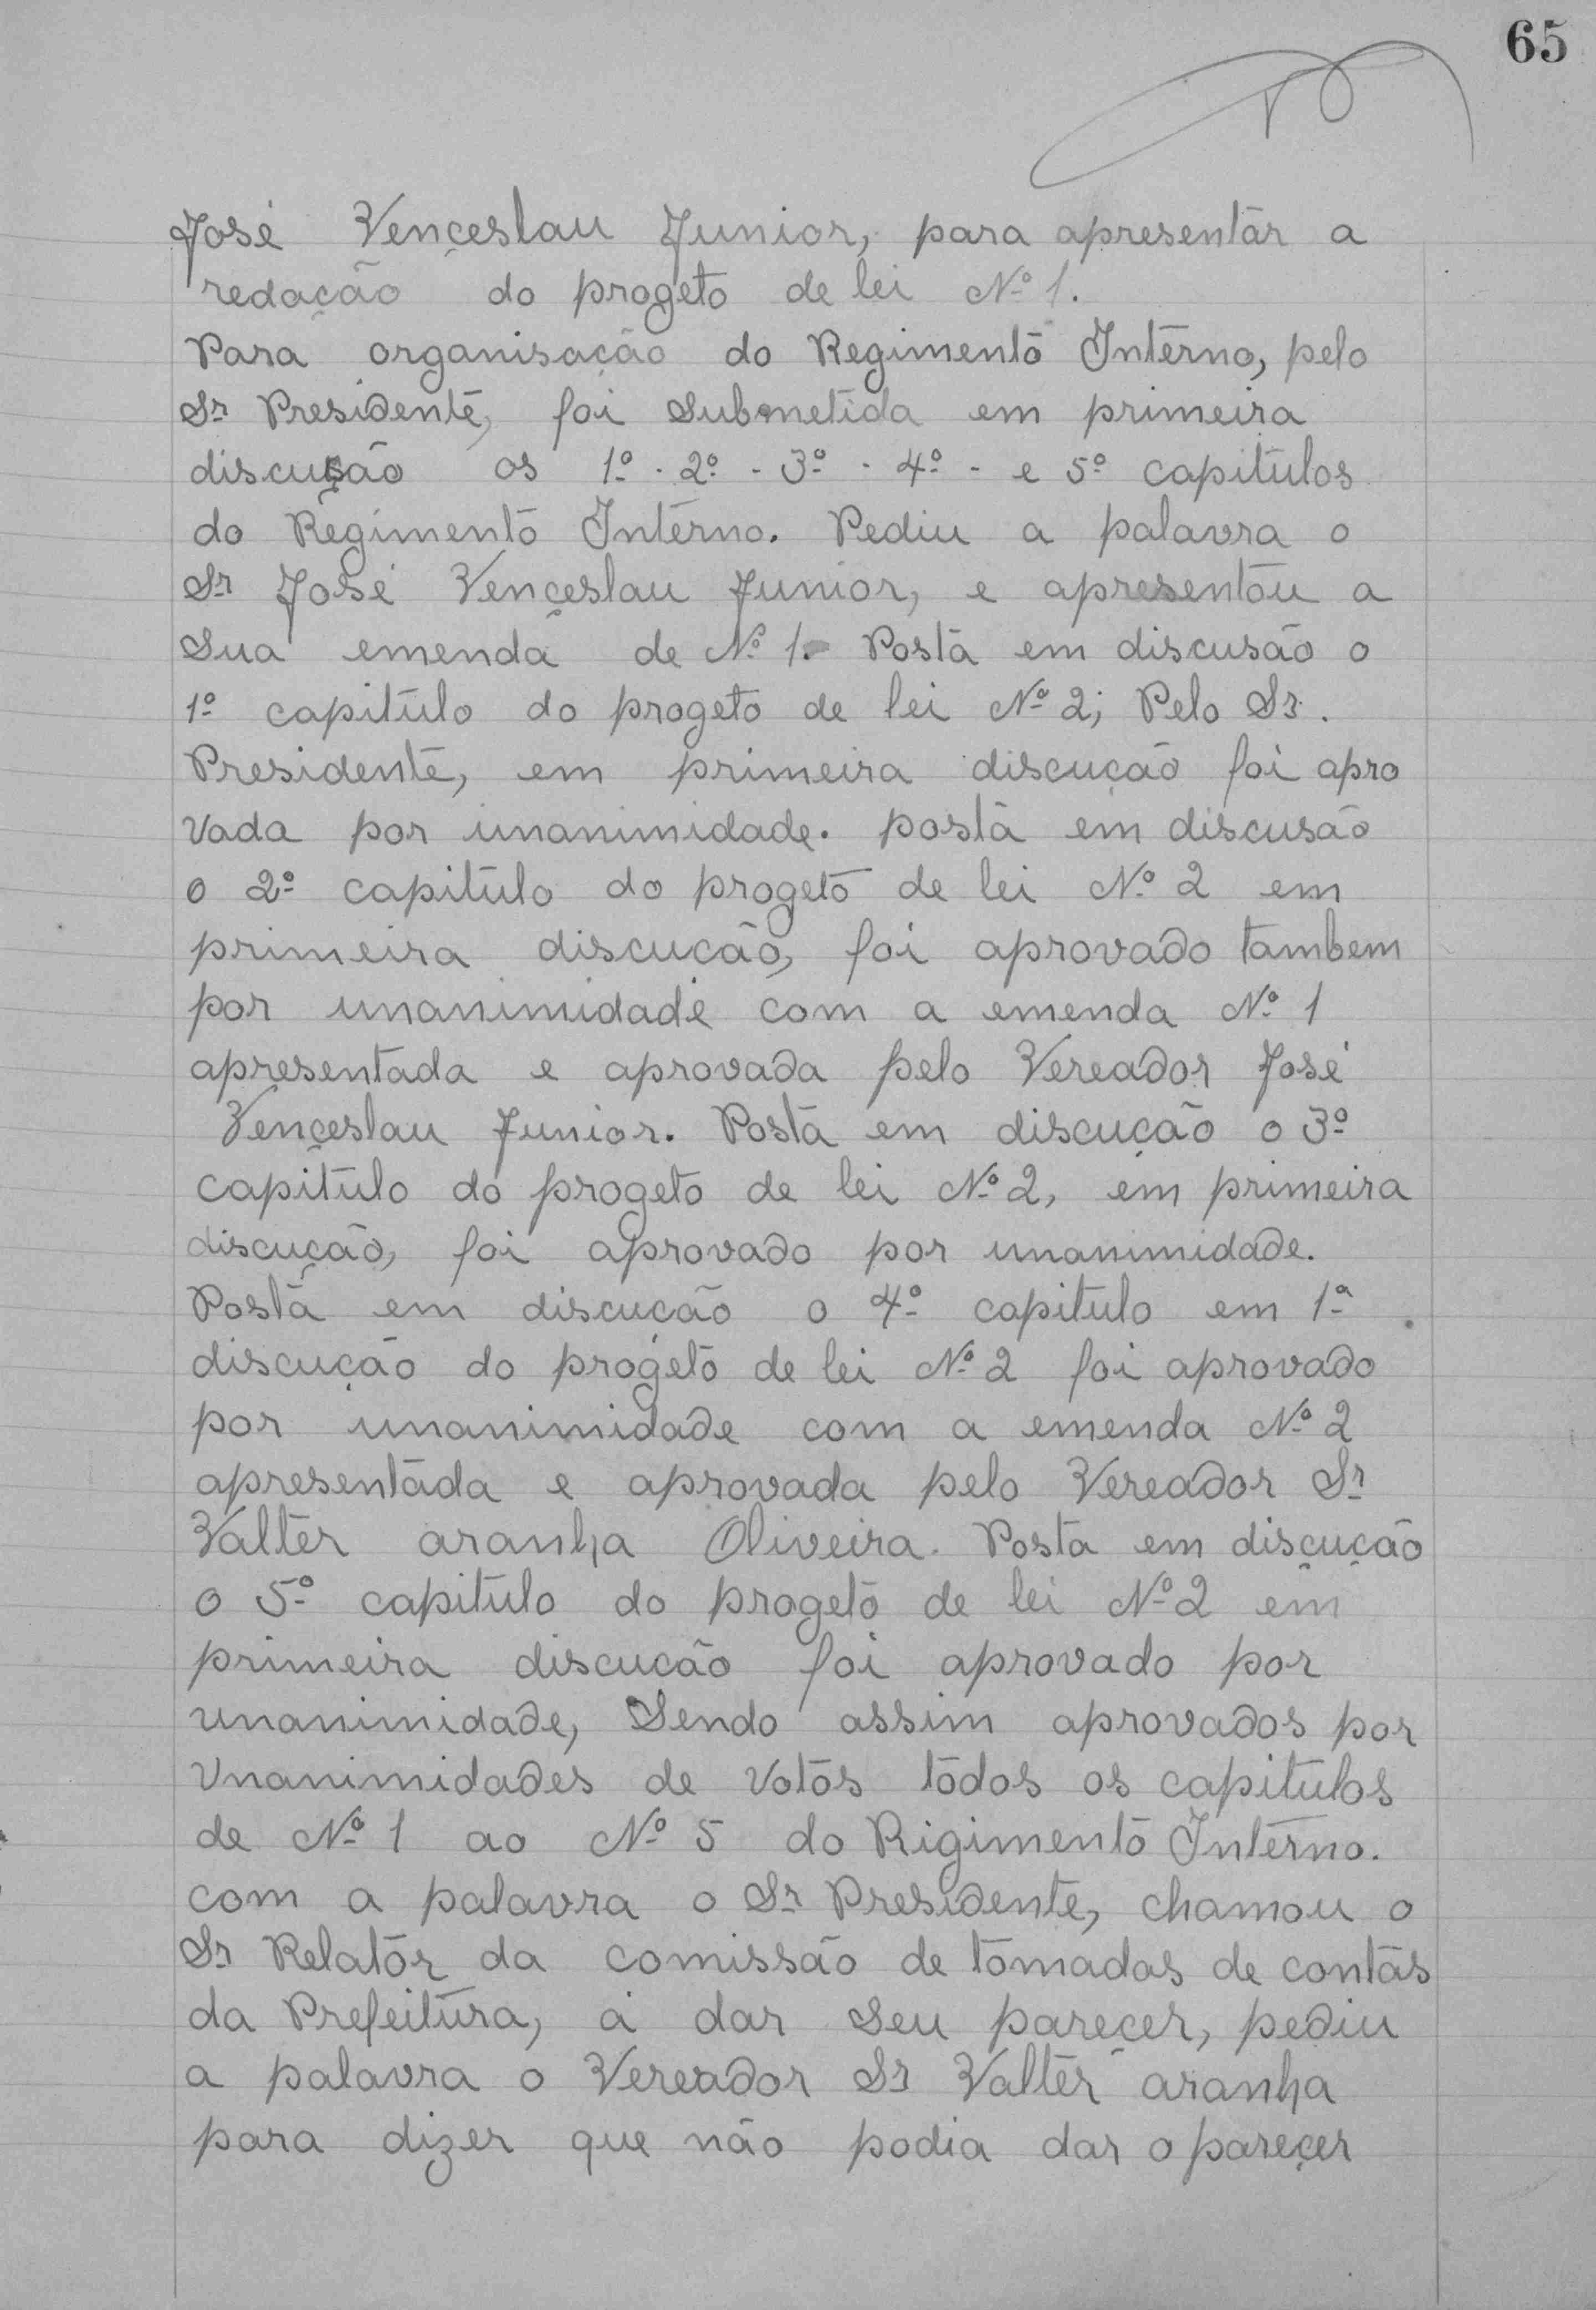 65
José Vençeslau Junior, para apresentar a
redação do progeto de lei Nº 1.
Para organisação do Regimento Interno, pelo
Sr Presidente, foi Submetida em primeira
discusão os 1º - 2º - 3º - 4º - e 5º capitulos
do Regimento Interno. Pediu a palavra o
Sr José Vençeslau Junior, e apresentou a
Sua emenda de Nº 1. Posta em discusão o
1º capitulo do progeto de lei Nº 2; Pelo Sr.
Presidente, em primeira discução foi apro
vada por unanimidade. posta em discusão
o 2º capitulo do progeto de lei Nº 2 em
primeira discução, foi aprovado tambem
por unanimidade com a emenda Nº 1
apresentada e aprovada pelo Vereador José
Vençeslau Junior. Posta em discução o 3º
capitulo do progeto de lei Nº 2, em primeira
discução, foi aprovado por unanimidade.
Posta em discução o 4º capitulo em 1ª
discução do progeto de lei Nº 2 foi aprovado
por unanimidade com a emenda Nº 2
apresentada e aprovada pelo Vereador Sr
Valter aranha Oliveira. Posta em disçução
o 5º capitulo do progeto de lei Nº 2 em
primeira discução foi aprovado por
unanimidade, Sendo assim aprovados por
Unanimidades de Votos todos os capitulos
de Nº 1 ao Nº 5 do Rigimento Interno.
com a palavra o Sr Presidente, chamou o
Sr Relator da comissão de tomadas de contas
da Prefeitura, á dar Seu pareçer, pediu
a palavra o Vereador Sr Valter aranha
para dizer que não podia dar o pareçer